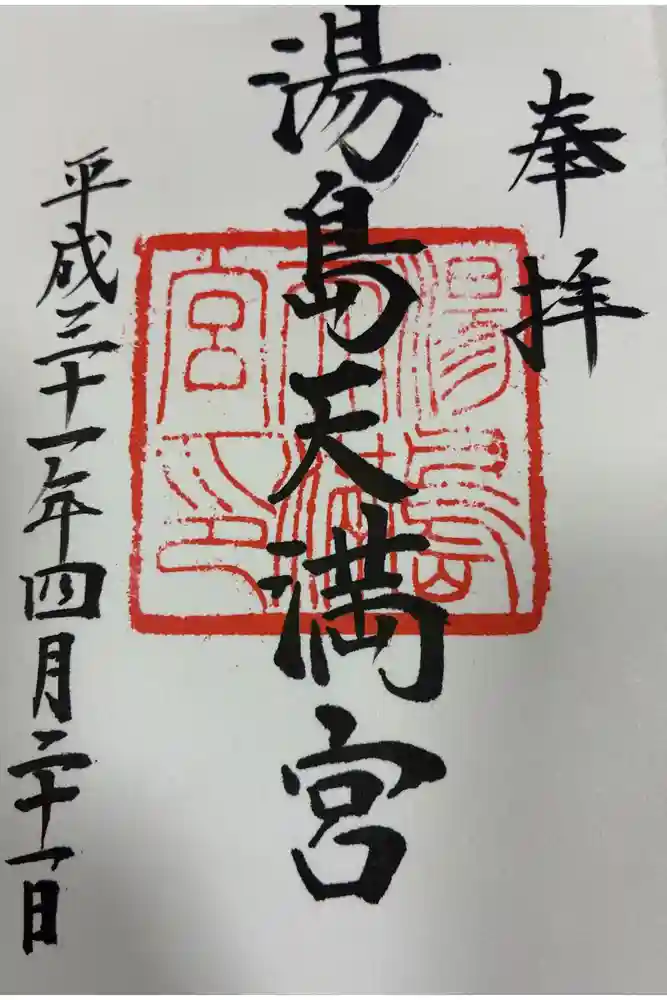 奉拝
湯島天満宮
湯島天満宮印
平成三十一年四月二十一日